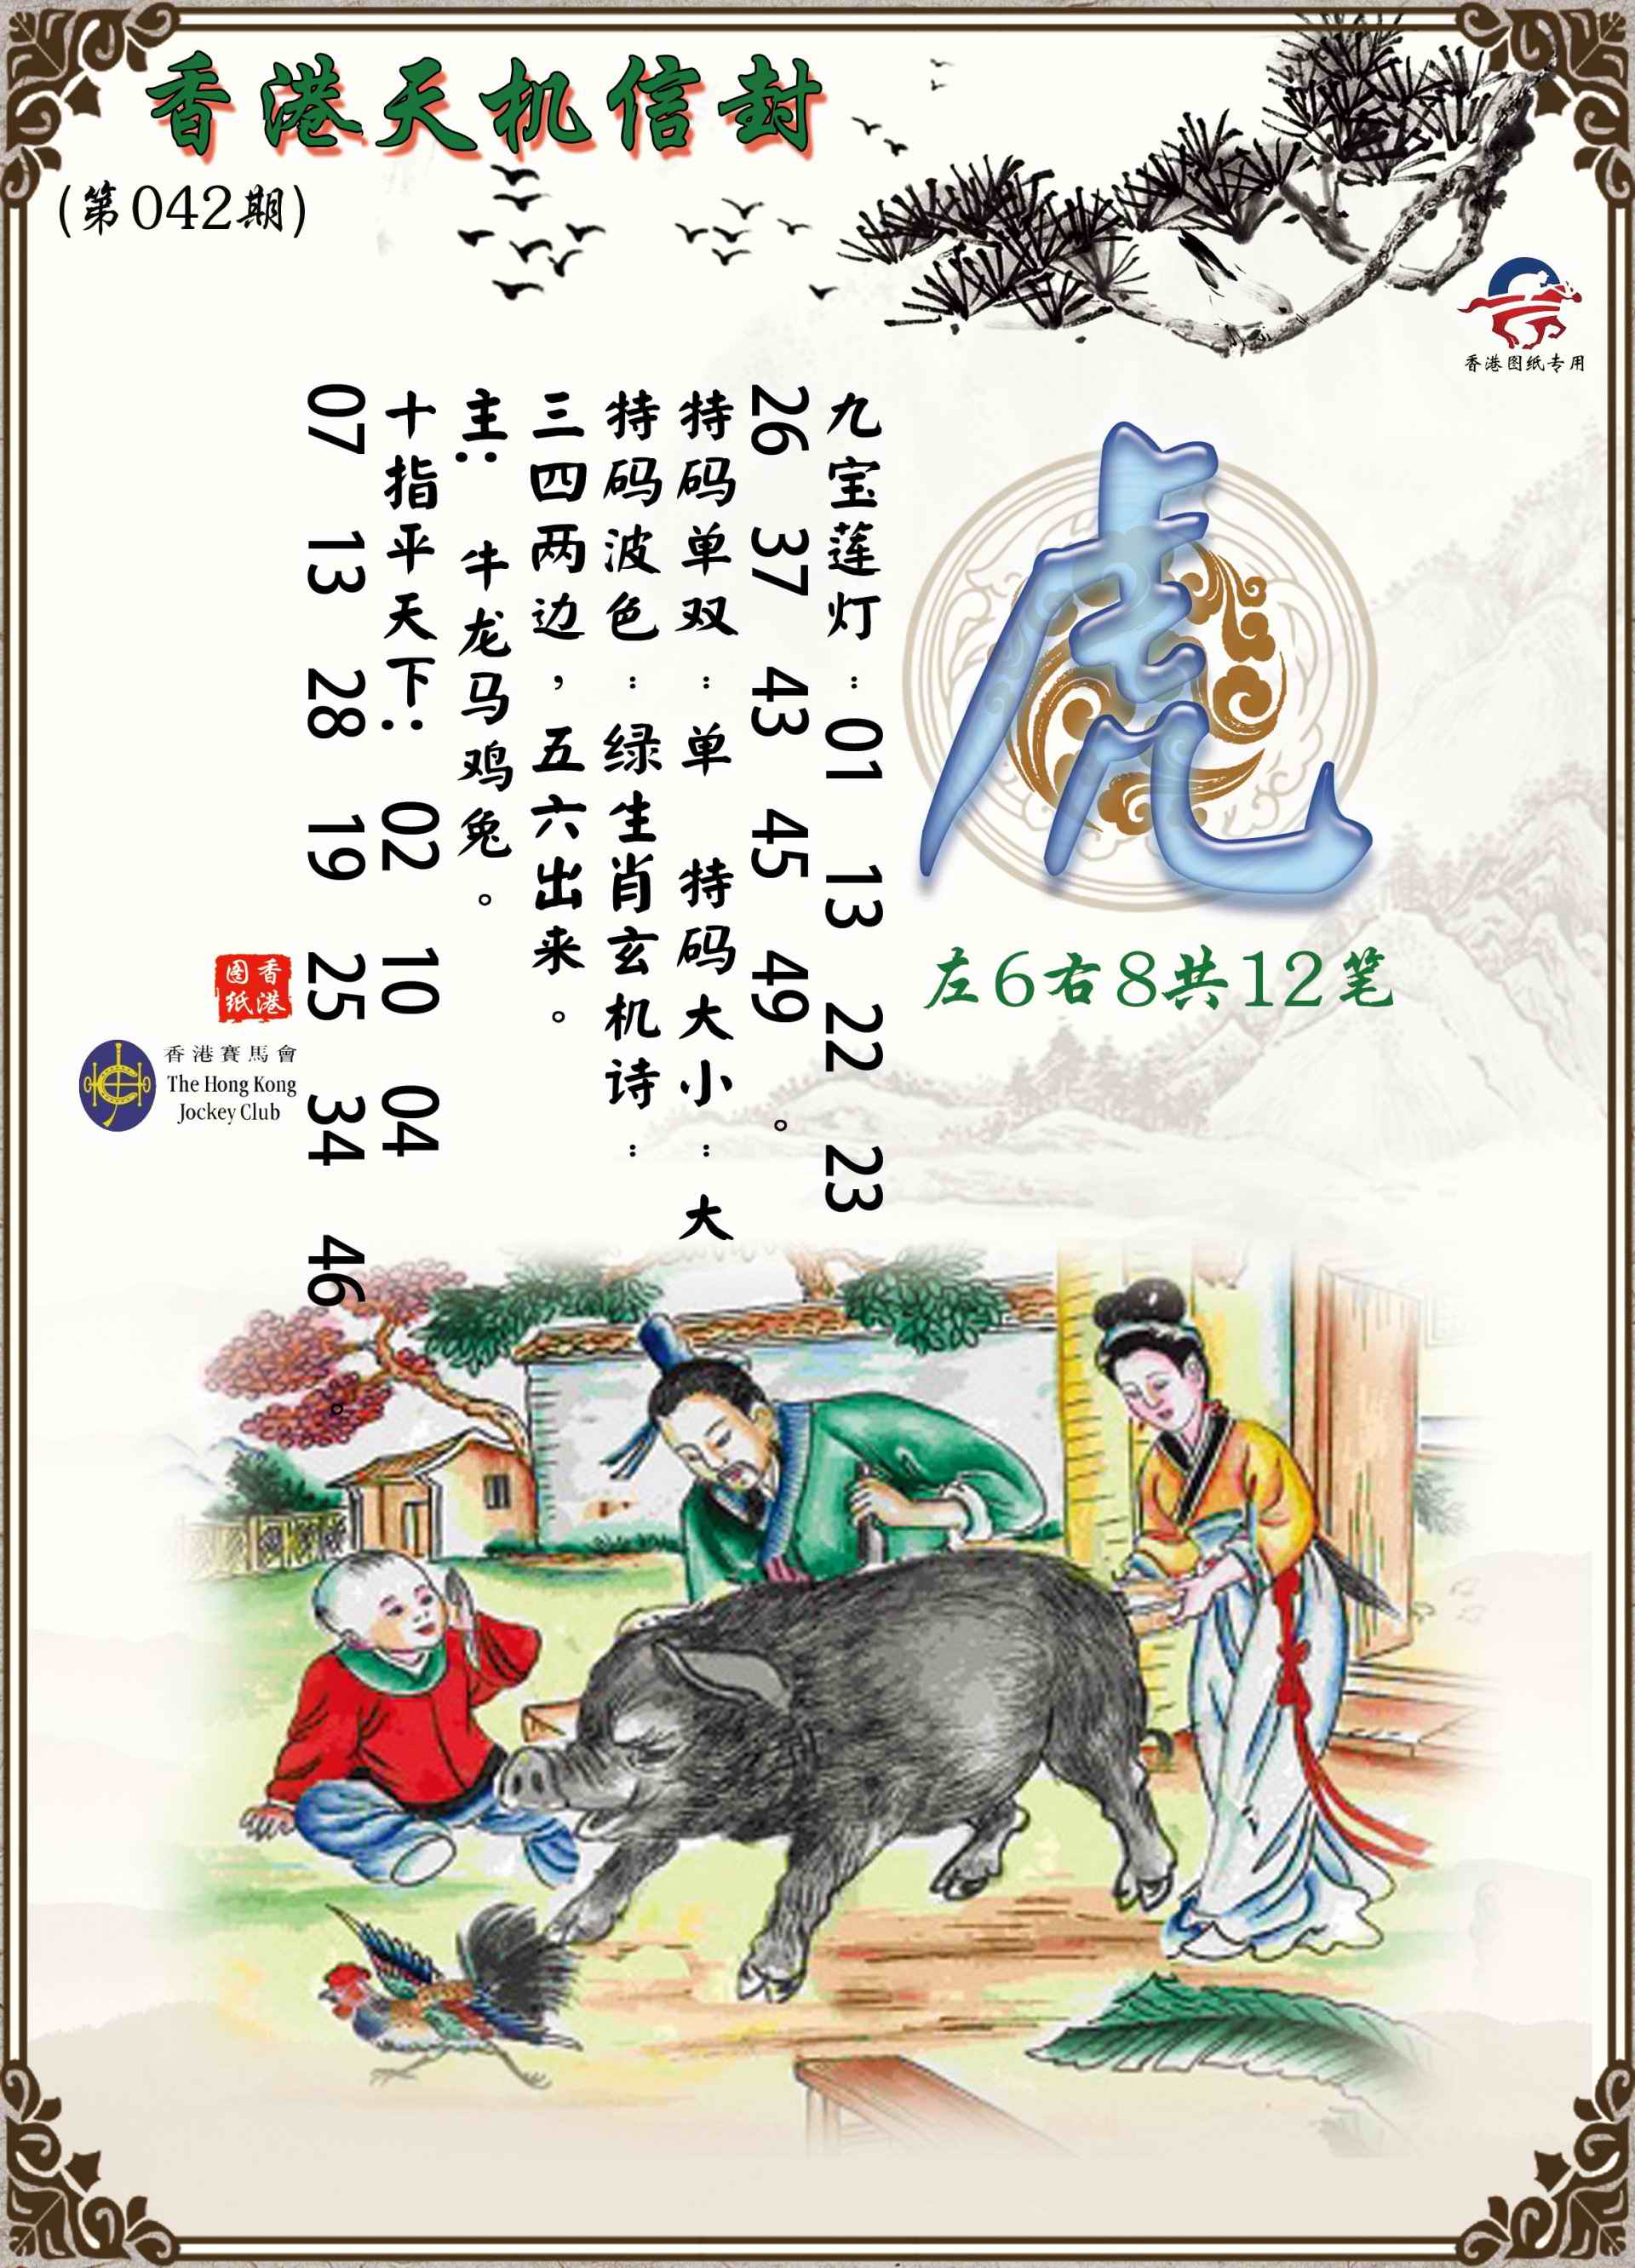 香港天机信封
(第042期)
香港图纸专用
虎
左6右8共12笔
九宝莲灯:01 13 22 23
26 37 43 45 49。
特码单双:单 特码大小:大
特码波色:绿生肖玄机诗:
三四两边,五六出来。
主: 牛龙马鸡兔。
十指平天下: 02 10 04
07 13 28 19 25 34 46。
香港
图纸
香港賽馬會
The Hong Kong
Jockey Club